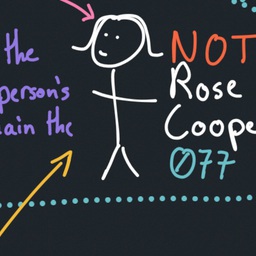 the
person's
ain the
NOT
Rose
Coope
077